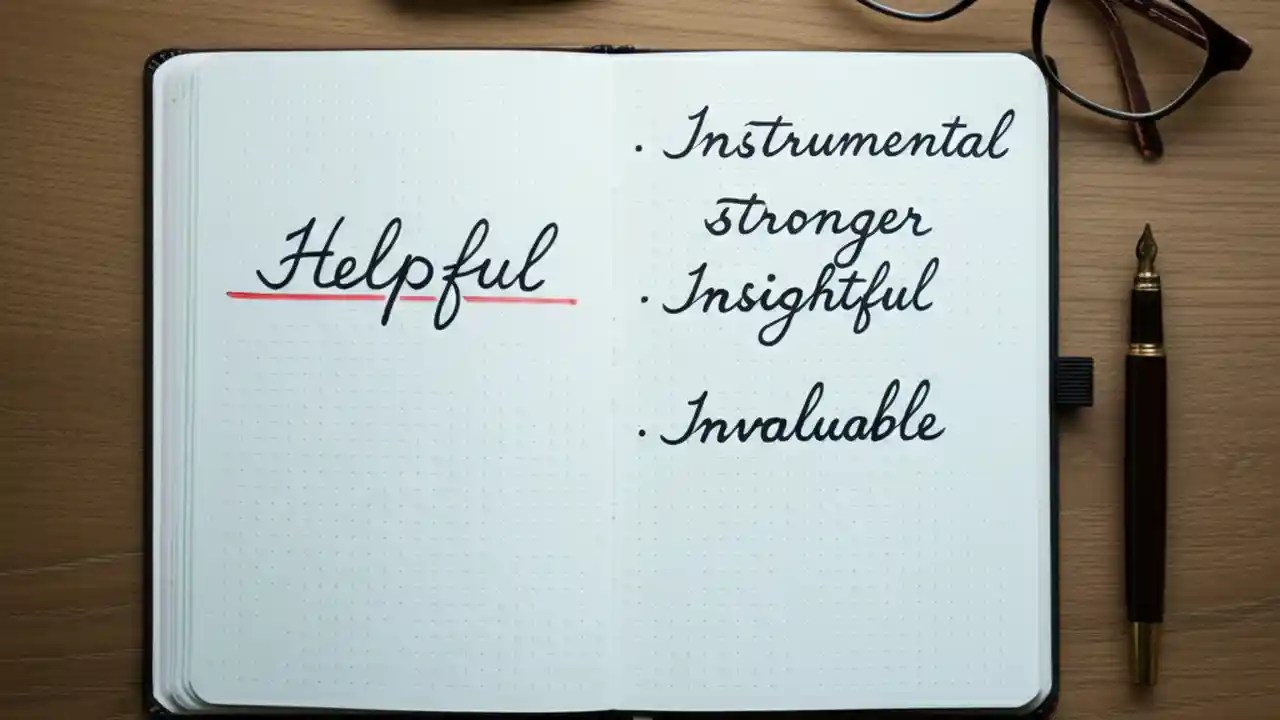 Helpful
· Instrumental
stronger
· Insightful
· Invaluable